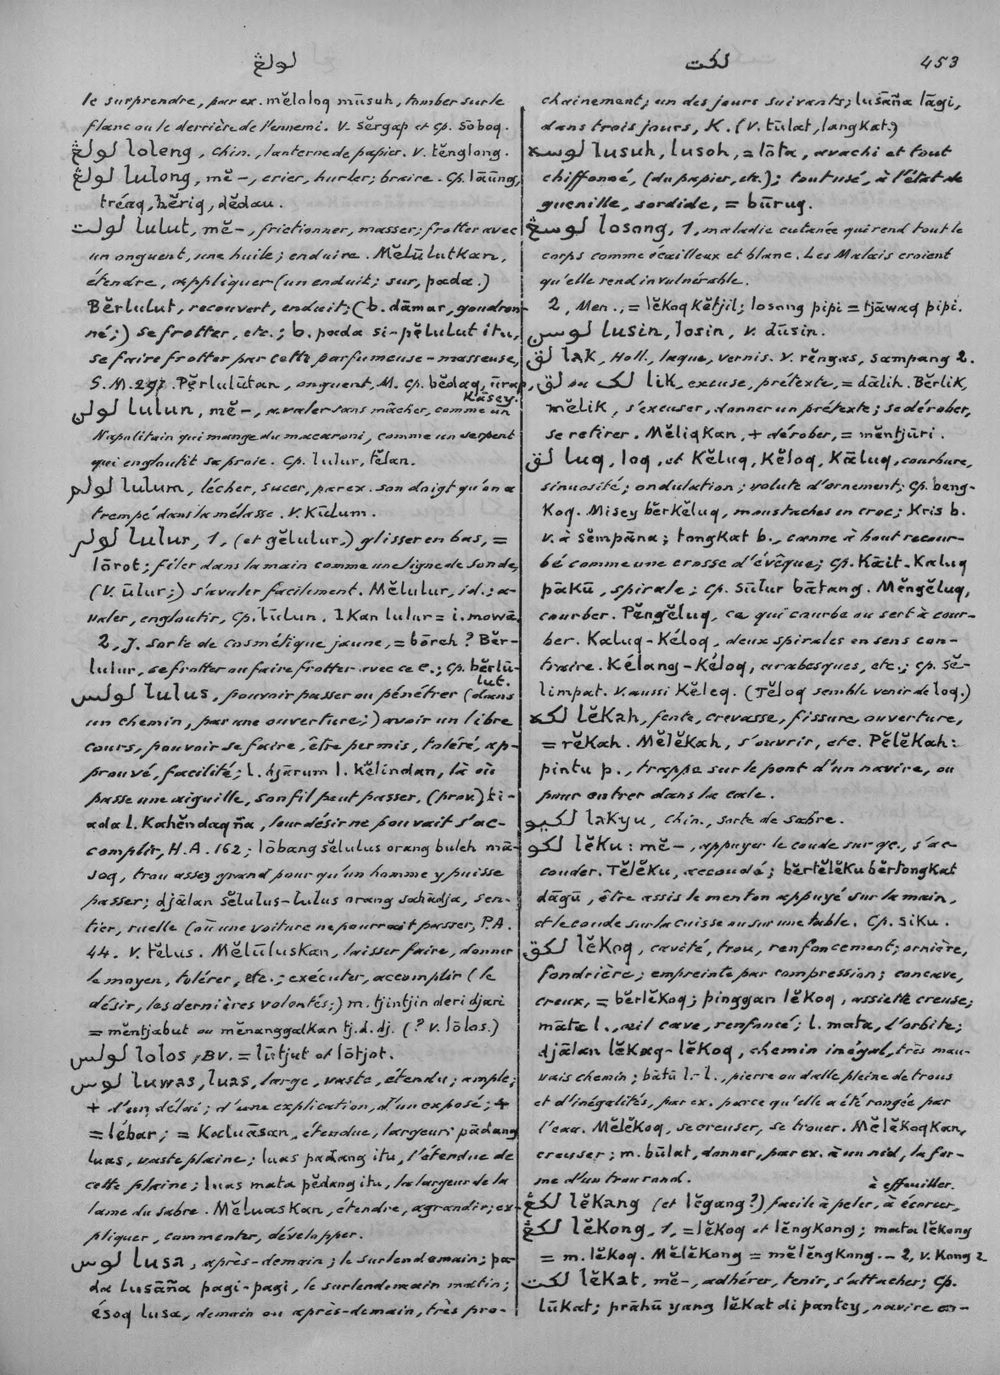 لولڠ
لكت
453
le surprendre, par ex. mĕloloq mūsuh, tomber sur le
flanc ou le derrière de l'ennemi. V. sĕrgap et cp. sōboq.
لولڠ loleng, chin., lanterne de papier. V. tĕnglong.
لولڠ lulong, mĕ-, crier, hurler; braire. Cp. lāūng,
trĕaq, hĕriq, dĕdau.
لولت lulut, mĕ-, frictionner, masser; frotter avec
un onguent, une huile; enduire. Mĕlūlutkan,
étendre, appliquer (un enduit; sur, pada.)
Bĕrlulut, recouvert, enduit; (b. dāmar, goudron-
né;) se frotter, etc.; b. pada si-pĕlulut itu,
se faire frotter par cette parfumeuse-masseuse,
S.M. 297. Pĕrlulūtan, onguent, M. cp. bĕdaq, ūrap,
kāsey.
لولن lulun, mĕ-, avaler sans mâcher, comme un
Napolitain qui mange du macaroni, comme un serpent
qui engloutit sa proie. Cp. lulur, tĕlan.
لولم lulum, lécher, sucer, par ex. son doigt qu'on a
trempé dans la mélasse. V. Kūlum.
لولر lulur, 1, (et gĕlulur,) glisser en bas, =
lōrot; filer dans la main comme une ligne de sonde,
(V. ūlur;) s'avaler facilement. Mĕlulur, id.; a-
valer, engloutir, cp. lūlun. Ikan lulur = i. mowā.
2, J. sorte de cosmétique jaune, = bōreh? Bĕr-
lulur, se frotter ou faire frotter avec ce c.; cp. bĕrlū-
lut.
لولس lulus, pouvoir passer ou pénétrer (dans
un chemin, par une ouverture;) avoir un libre
cours, pouvoir se faire, être permis, toléré, ap-
prouvé, facilité; l. hjārum l. kĕlindan, là où
passe une aiguille, son fil peut passer, (prov.) ti-
ada l. Kahĕndaqña, leur désir ne pouvait s'ac-
complir, H.A. 162; lōbang sĕlulus orang buleh mā-
soq, trou assez grand pour qu'un homme y puisse
passer; djālan sĕlulus-lulus orang sahādja, sen-
tier, ruelle (où une voiture ne pourrait passer, P.A.
44. V. tĕlus. Mĕlūluskan, laisser faire, donner
le moyen, tolérer, etc.; exécuter, accomplir (le
désir, les dernières volontés;) m. tjintjin deri djari
= mĕntjabut ou mĕnanggalkan tj.d.dj. (? V. lōlos.)
لولس lolos, BV. = lūtjut et lōtjot.
لوس luwas, luas, large, vaste, étendu; ample;
+ d'un délai; d'une explication, d'un exposé; +
= lébar; = Kaluāsan, étendue, largeur; pādang
luas, vaste plaine; luas padang itu, l'étendue de
cette plaine; luas mata pĕdang itu, la largeur de la
lame du sabre. Mĕluaskan, étendre, agrandir; ex-
pliquer, commenter, développer.
لوس lusa, après-demain; le surlendemain; pa-
da lusāña pagi-pagi, le surlendemain matin;
ésoq lusa, demain ou après-demain, très pro-
chainement; un des jours suivants; lusāña lāgi,
dans trois jours, K. (V. tūlat, langkat.)
لوسه lusuh, lusoh, = lōta, avachi et tout
chiffonné, (du papier, etc.); tout usé, à l'état de
guenille, sordide, = būruq.
لوسڠ losong, 1, maladie cutanée qui rend tout le
corps comme écailleux et blanc. Les Malais croient
qu'elle rend invulnérable.
2, Men., = lĕkoq kĕtjil; losong pipi = tjāwaq pipi.
لوسن lusin, losin, V. dūsin.
لق lak, Holl., laque, vernis. V. rĕngas, sampang 2.
لق ou لک lik, excuse, prétexte, = dālih. Bĕrlik,
mĕlik, s'excuser, donner un prétexte; se dérober,
se retirer. Mĕliqkan, + dérober, = mĕntjūri.
لق luq, loq, et Kĕluq, Kĕloq, Kāluq, courbure,
sinuosité; ondulation; volute d'ornement; cp. bĕng-
Koq. Misey bĕrkĕluq, moustaches en croc; Kris b.
V. à sĕmpāna; tongkat b., canne à bout recour-
bé comme une crosse d'évêque; cp. Kāit. Kaluq
pāKū, spirale; cp. sūlur bātang. Mĕngĕluq,
courber. Pĕngĕluq, ce qui courbe ou sert à cour-
ber. Kaluq-Kéloq, deux spirales en sens con-
traire. Kélang-Kéloq, arabesques, etc.; cp. sĕ-
limpat. V. aussi Kĕleq. (Tĕloq semble venir de loq.)
لكه lĕkah, fente, crevasse, fissure, ouverture,
= rĕkah. Mĕlĕkah, s'ouvrir, etc. Pĕlĕkah:
pintu p., trappe sur le pont d'un navire, ou
pour entrer dans la cale.
لكيو lakyu, chin., sorte de sabre.
لكو lĕku: mĕ-, appuyer le coude sur qc., s'ac-
couder. Tĕlĕku, accoudé; bĕrtĕlĕku bĕrtongkat
dāgū, être assis le menton appuyé sur la main,
et le coude sur la cuisse ou sur une table. Cp. siku.
لكق lĕkoq, cavité, trou, renfoncement; ornière,
fondrière; empreinte par compression; concave,
creux, = bĕrlĕkoq; pinggan lĕkoq, assiette creuse;
māta l., œil cave, renfoncé; l. mata, l'orbite;
djālan lĕkaq-lĕkoq, chemin inégal, très mau-
vais chemin; bātū l.-l., pierre ou dalle pleine de trous
et d'inégalités, par ex. parce qu'elle a été rongée par
l'eau. Mĕlĕkoq, se creuser, se trouer. Mĕlĕkoqkan,
creuser; m. būlat, donner, par ex. à un nid, la for-
me d'un trou rond.
à effeuiller.
لكڠ lĕkang (et lĕgang?) facile à peler, à écorcer,
لكڠ lĕkong, 1, = lĕkoq et lĕngkong; mata lĕkong
= m. lĕkoq. Mĕlĕkong = mĕlĕngkong. — 2, V. Kong 2
لكت lĕkat, mĕ-, adhérer, tenir, s'attacher; cp.
lūkat; prāhū yang lĕkat di pantey, navire en-